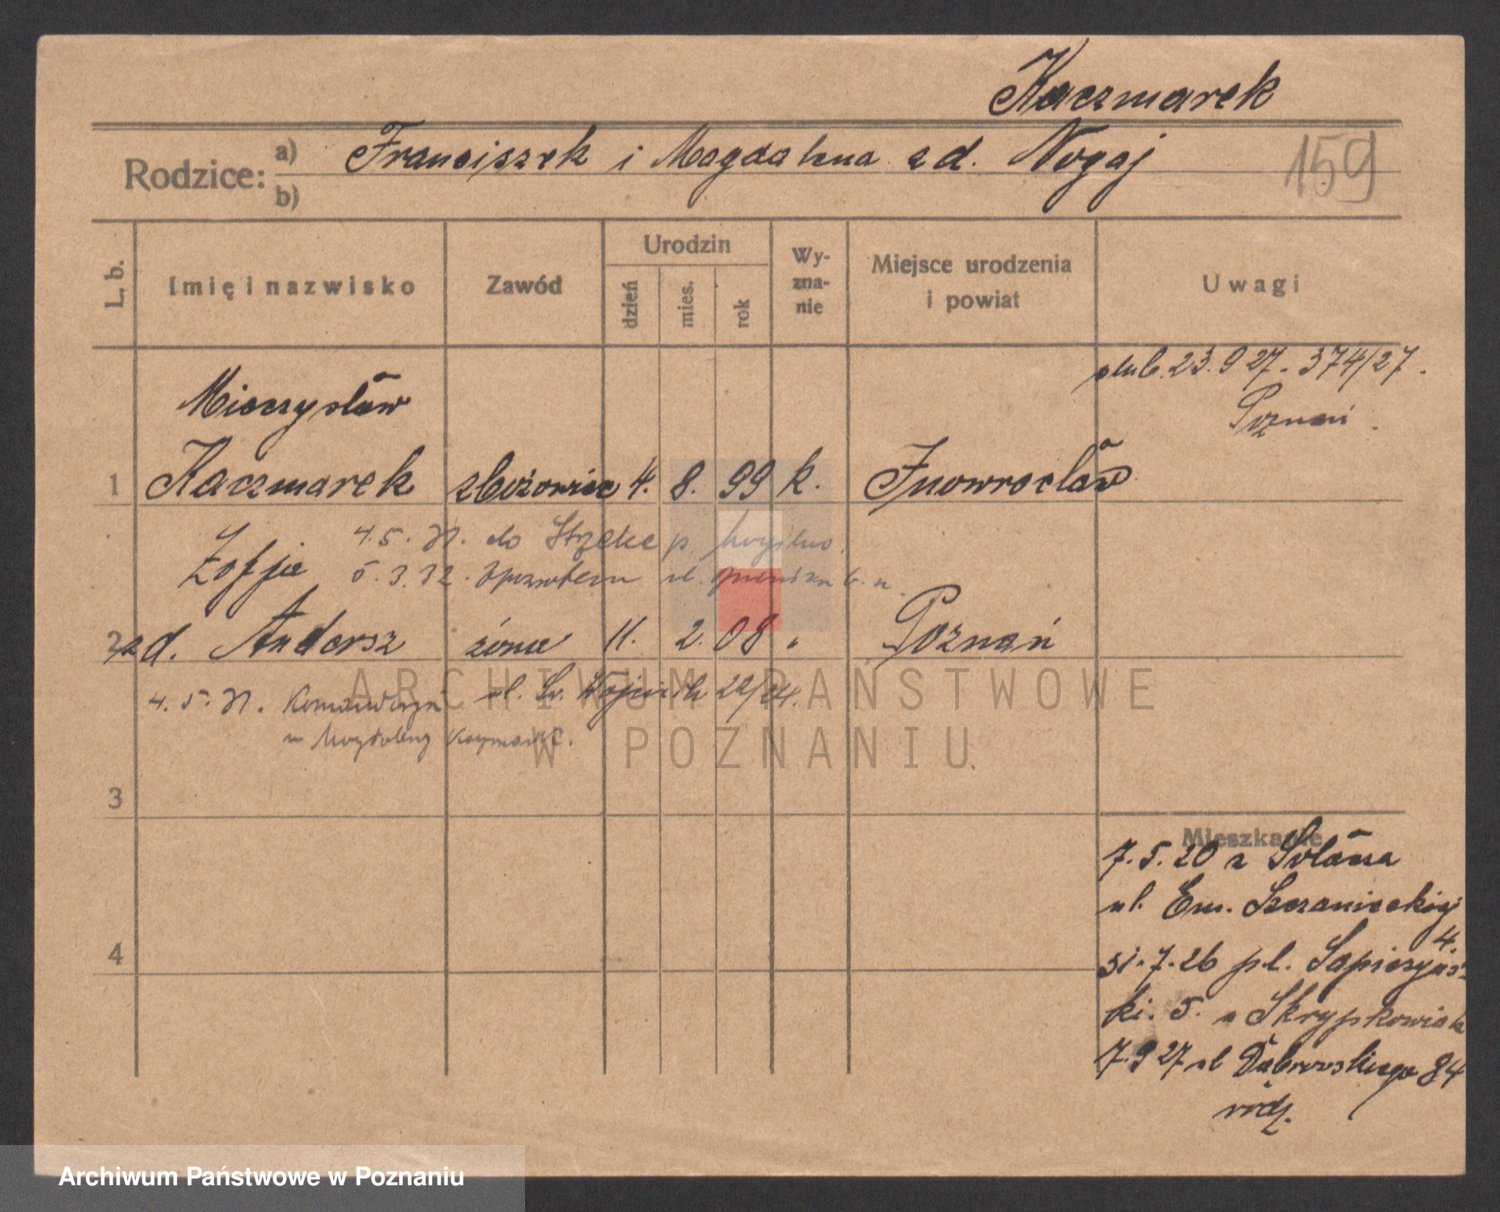 Kaczmarek
Rodzice: a) Franciszek i Magdalena zd. Nogaj
b)
159
L. b.
Imię i nazwisko
Zawód
Urodzin
dzień
mies.
rok
Wy-
zna-
nie
Miejsce urodzenia
i powiat
Uwagi
ślub. 23. 9 27. 374/27.
Poznań.
Mieczysław
1 Kaczmarek zbożowiec 4. 8. 99 k. Inowrocław
4. 5. 31. do p. Mogilno.
Zofja 5. 3. 32.
2 zd. Andersz żona 11. 2. 08 " Poznań
4. 5. 31. ul. Św. Wojciech 22/24.
u Magdaleny Kaczmarek.
3
Mieszkanie
7. 5. 20 z Sołacza
ul. Em. Szczanieckiej
4.
4
31. 7. 26 pl. Sapieżyńs-
ki. 5. u Skrypkowiak
7. 9 27 ul Dąbrowskiego 84
rodz.
ARCHIWUM PAŃSTWOWE
W POZNANIU
Archiwum Państwowe w Poznaniu